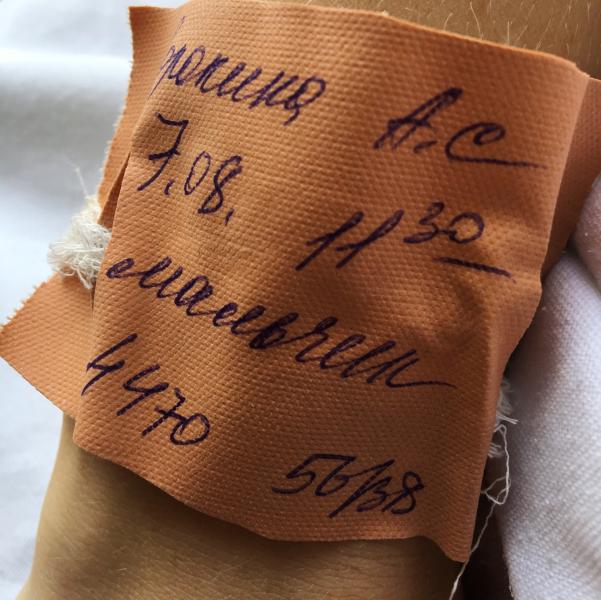 А.С
7.08. 11 30
мальчик
4470 56/38